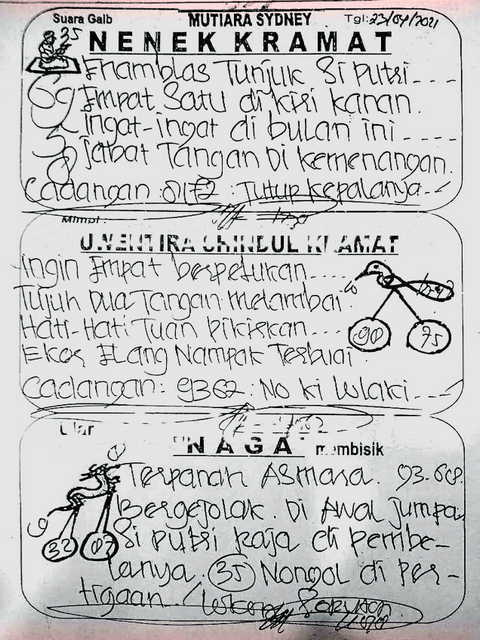 Suara Gaib MUTIARA SYDNEY Tgl: 23/04/2021
35 NENEK KRAMAT
Enamblas Tunjuk Si Putri ----
Empat Satu di kiri kanan.
Ingat-ingat di bulan ini ----
Jabat Tangan Di kemenangan.
Cadangan: 8172: Tutup kepalanya
Mimpi:
KRAMAT
Ingin Empat berpelukan....
Tujuh Dua Tangan melambai
Hati-Hati Tuan pikirkan...
90 75
Ekor Elang Nampak Terburai
Cadangan: 9362: No ki lulaki
Ular
"NAGA" membisik
Terpanah Asmara. 93.
Bergejolak. Di Awal jumpa
Si putri Raja di pembe-
32 07
lanya. 35 Nongol di per-
tigaan.